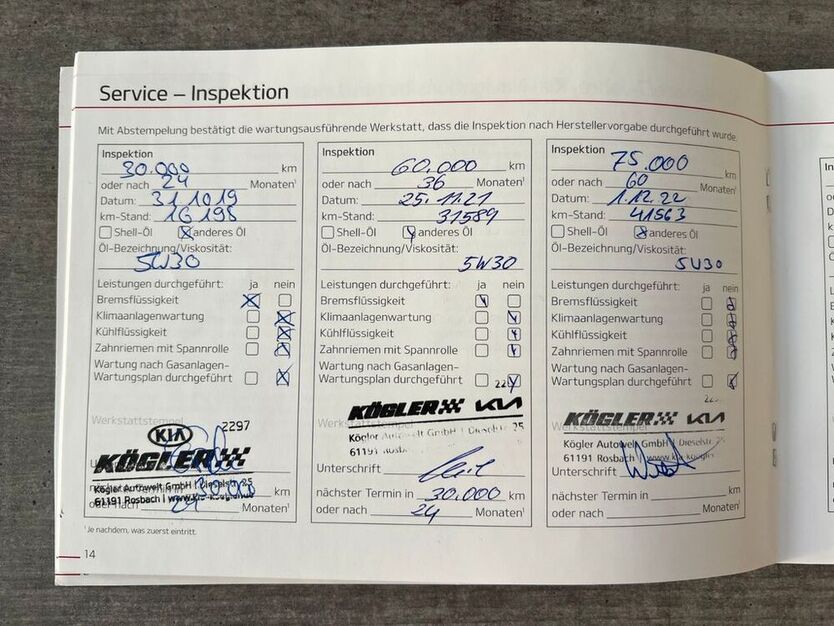 Service – Inspektion
Mit Abstempelung bestätigt die wartungsausführende Werkstatt, dass die Inspektion nach Herstellervorgabe durchgeführt wurde.
Inspektion
30.000 km
oder nach 24 Monaten¹
Datum: 31 10 19
km-Stand: 16 195
Shell-Öl anderes Öl
Öl-Bezeichnung/Viskosität:
5W30
Leistungen durchgeführt: ja nein
Bremsflüssigkeit
Klimaanlagenwartung
Kühlflüssigkeit
Zahnriemen mit Spannrolle
Wartung nach Gasanlagen-
Wartungsplan durchgeführt
Werkstattstempel
2297
KIA
KÖGLER
Kögler Autowelt GmbH | Dieselstr. 25
61191 Rosbach
nächster Termin in 30.000 km
oder nach 24 Monaten¹
Inspektion
60.000 km
oder nach 36 Monaten¹
Datum: 25.11.21
km-Stand: 31589
Shell-Öl anderes Öl
Öl-Bezeichnung/Viskosität:
5W30
Leistungen durchgeführt: ja nein
Bremsflüssigkeit
Klimaanlagenwartung
Kühlflüssigkeit
Zahnriemen mit Spannrolle
Wartung nach Gasanlagen-
Wartungsplan durchgeführt
KÖGLER KIA
Werkstattstempel
Kögler Autowelt GmbH Dieselstr. 25
61191 Rosb
Unterschrift
nächster Termin in 30.000 km
oder nach 24 Monaten¹
Inspektion
75.000 km
oder nach 60 Monaten¹
Datum: 1.12.22
km-Stand: 41563
Shell-Öl anderes Öl
Öl-Bezeichnung/Viskosität:
5W30
Leistungen durchgeführt: ja nein
Bremsflüssigkeit
Klimaanlagenwartung
Kühlflüssigkeit
Zahnriemen mit Spannrolle
Wartung nach Gasanlagen-
Wartungsplan durchgeführt
KÖGLER KIA
Werkstattstempel
Kögler Autowelt GmbH | Dieselstr. 25
61191 Rosbach
Unterschrift
nächster Termin in km
oder nach Monaten¹
¹ Je nachdem, was zuerst eintritt.
14